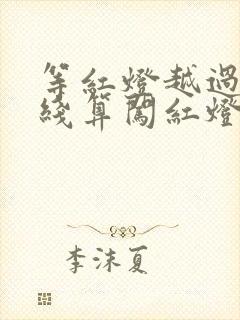 等红燈越過
綫算闖红燈
李沫夏